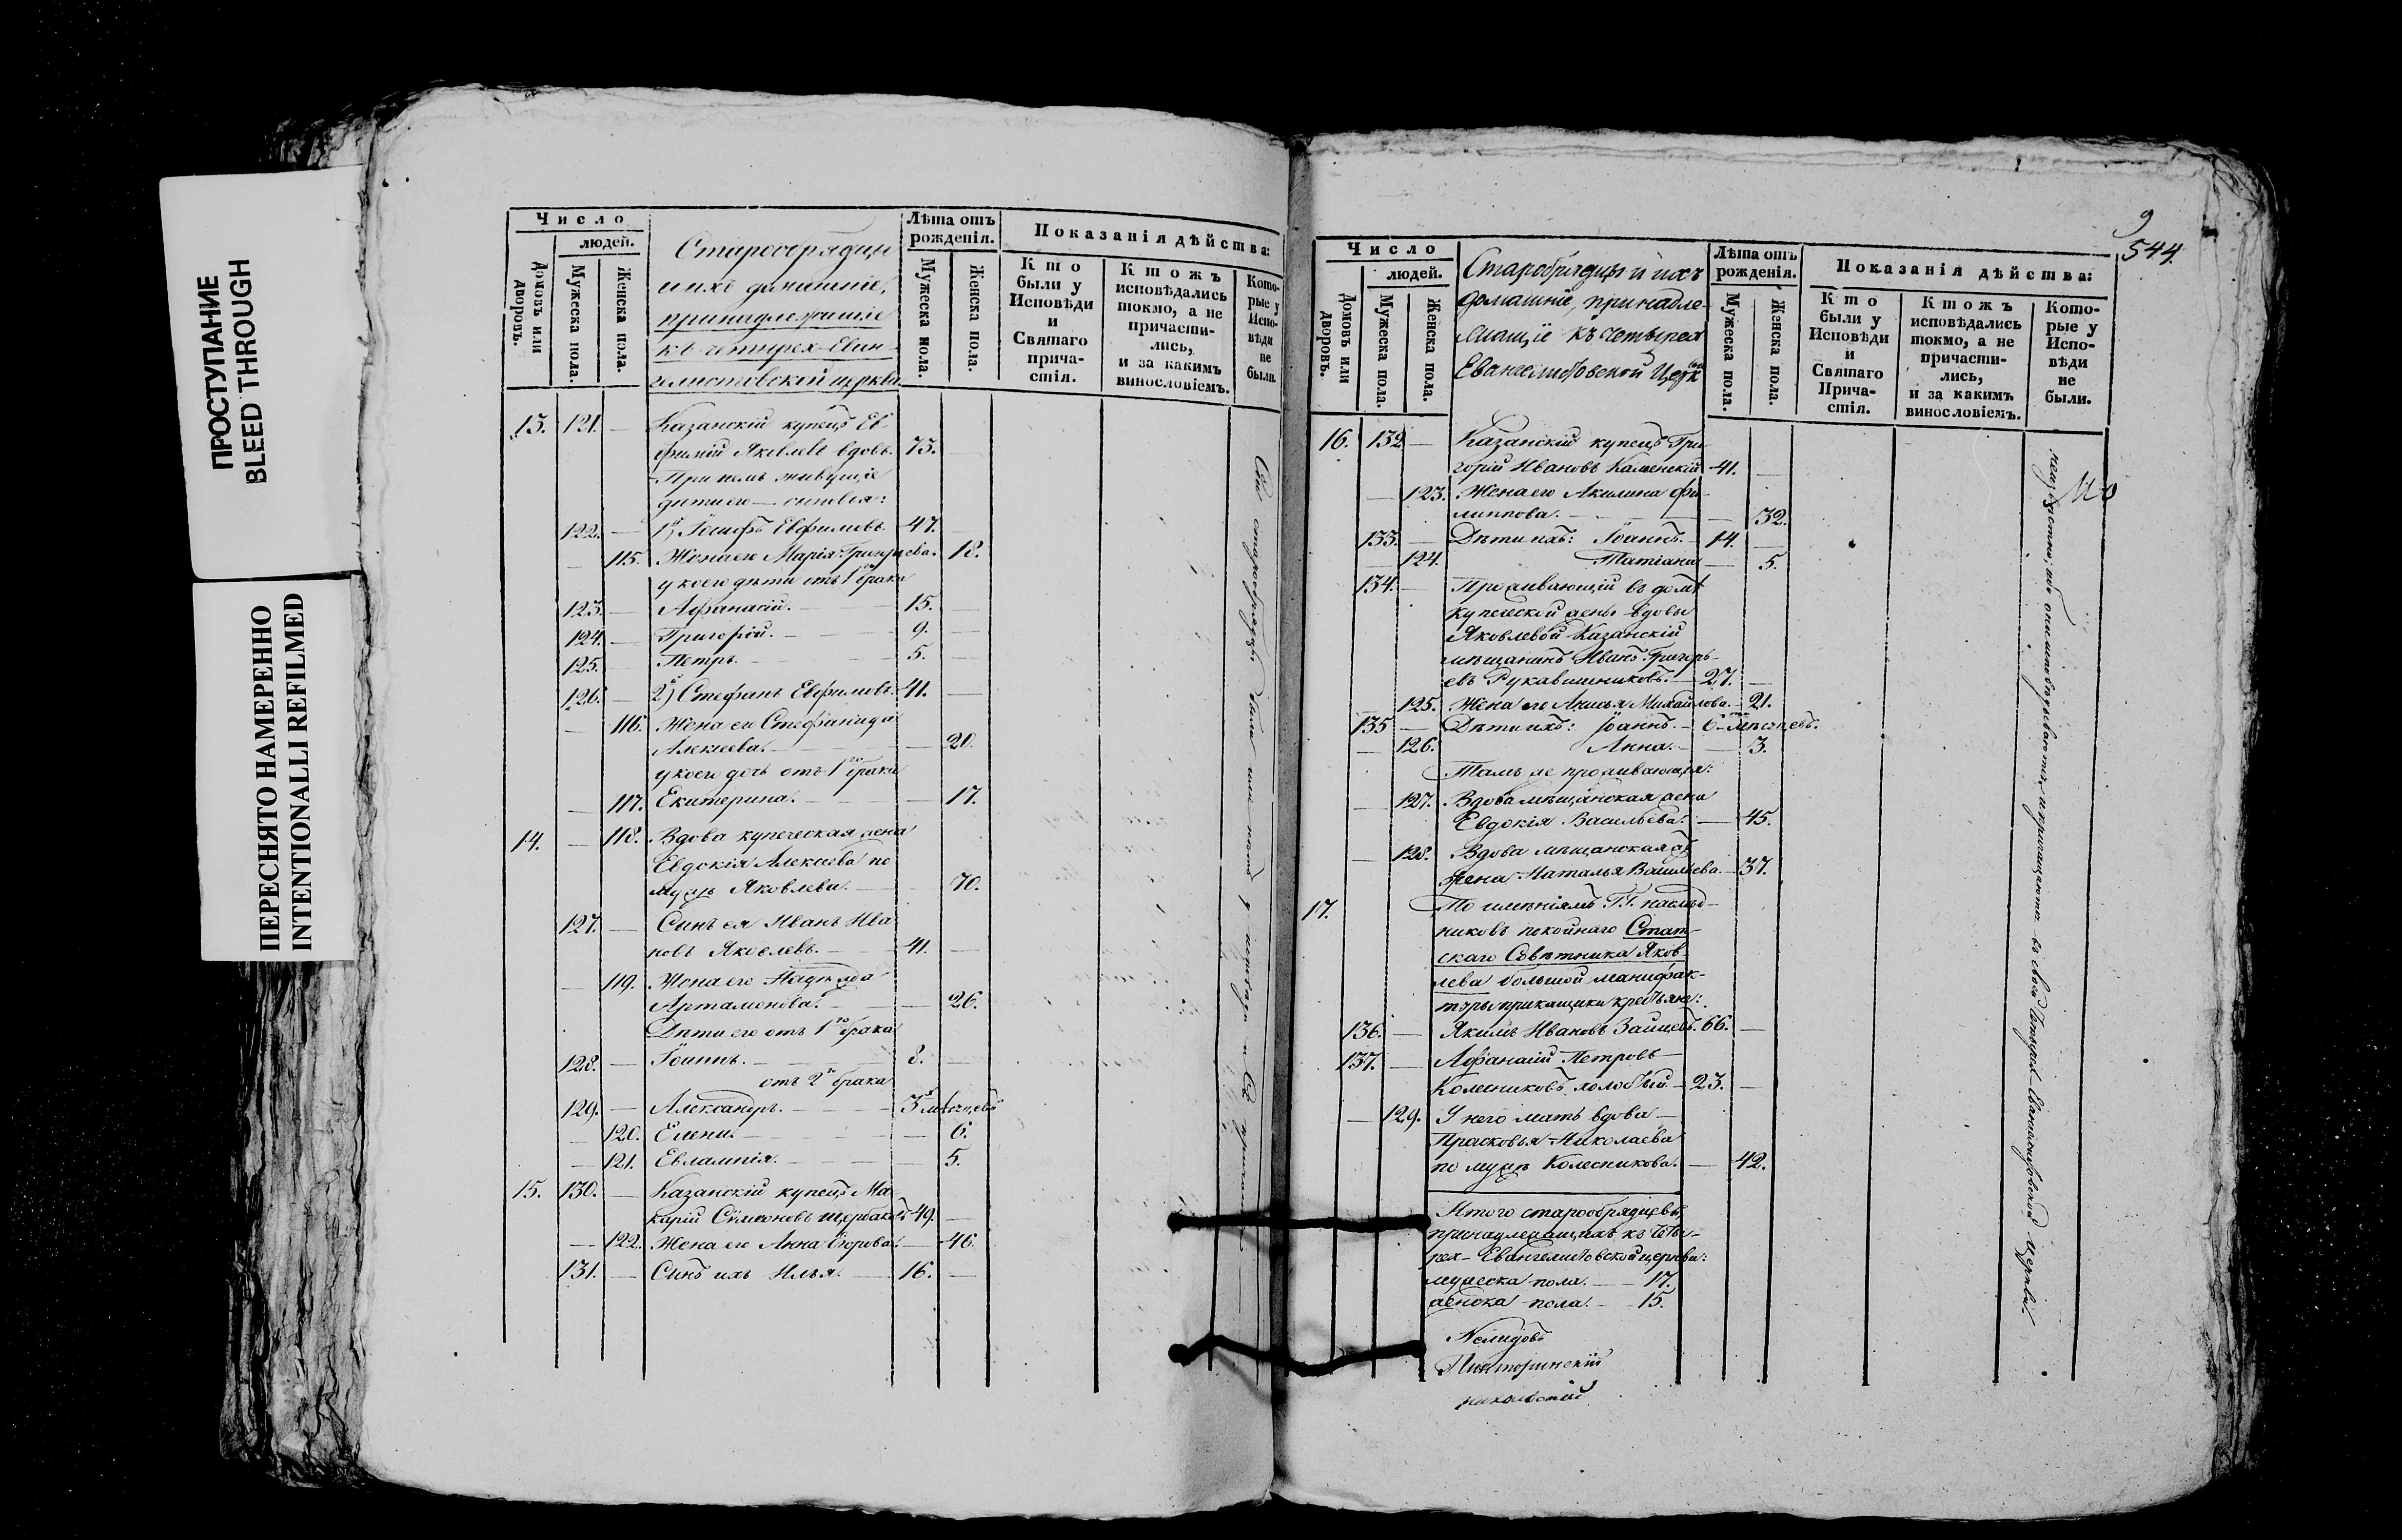 ПРОСТУПАНИЕ
BLEED THROUGH
ПЕРЕСНЯТО НАМЕРЕННО
INTENTIONALLI REFILMED
Число
людей.
Домовъ или дворовъ.
Мужеска пола.
Женска пола.
Старообрядцы
и ихъ домашнiе,
принадлежащiе
къ четырех-Еван-
гелистовской церкви.
Лѣта отъ рожденiя.
Мужеска пола.
Женска пола.
Показанiя дѣйства:
Кто были у Исповѣди и Святаго причастiя.
Ктожъ исповѣдались токмо, а не причасти-лись, и за какимъ винословiемъ.
Кото-рые у Испо-вѣди не были.
13. 121. — Казанскiй купецъ Ев-
фимiй Яковлевъ вдовъ. 73.
При немъ живущiе
дѣти его — сыновья:
122. — 1й) Iосифъ Евфимовъ. 47. —
— 115. Жена его Марiя Григорьева. 18.
у коего дѣти отъ 1го брака
123. — Афанасiй. — 15. —
124. — Григорiй. — 9. —
125. — Петръ. — 5. —
126. — 2й) Стефанъ Евфимовъ. 41. —
— 116. Жена его Стефанида
Алексеева. — — 20.
у коего дочь отъ 1го брака
— 117. Екатерина. — — 17.
14. — 118. Вдова купеческая жена
Евдокiя Алексеева по
мужѣ Яковлева. — — 70.
127. — Сынъ ея Иванъ Ива-
новъ Яковлевъ. — 41. —
— 119. Жена его Надежда
Артамонова. — — 26.
Дѣти его отъ 1го брака
128. — Iоаннъ. — 8. —
отъ 2го брака
129. — Александръ. — 3 мѣсяцевъ
— 120. Елена. — — 6.
— 121. Евлампiя. — — 5.
15. 130. — Казанскiй купецъ Ма-
карiй Симеоновъ Щербаковъ 49. —
— 122. Жена его Анна Егорова. — 46.
131. — Сынъ ихъ Илья. — 16. —
Сiи старообрядцы
9
544.
Число
людей.
Домовъ или дворовъ.
Мужеска пола.
Женска пола.
Старобрядцы и ихъ
домашнiе, принадле-
жащiе къ четырех
Евангелистовской Церкви
Лѣта отъ рожденiя.
Мужеска пола.
Женска пола.
Показанiя дѣйства:
Кто были у Исповѣди и Святаго Прича-стiя.
Ктожъ исповѣдались токмо, а не причасти-лись, и за какимъ винословiемъ.
Кото-рые у Испо-вѣди не были.
16. 132. — Казанскiй купецъ Гри-
горiй Ивановъ Каменскiй 41. —
— 123. Жена его Акилина Фи-
липпова. — — 32.
133. — Дѣти ихъ: Iоаннъ. — 14. —
— 124. Татiана — 5.
134. — Проживающiй въ домѣ
купеческой жены вдовы
Яковлевой Казанскiй
мѣщанинъ Иванъ Григорь-
евъ Рукавишниковъ. — 27. —
125. Жена его Анисья Михайлова. — 21.
135 — Дѣти ихъ: Iоаннъ. — 6 мѣсяцевъ.
— 126. Анна. — — 3.
Тамъ же проживающiя:
— 127. Вдова мѣщанская жена
Евдокiя Васильева. — 45.
— 128. Вдова мѣщанская ж
жена Наталья Васильева. — 37.
17. По имѣнiямъ Г.Г. наслѣд-
никовъ покойнаго Стат-
скаго Совѣтника Яков-
лева большой мануфак-
туры прикащики крестьяне:
136. — Якимъ Ивановъ Зайцевъ. 66. —
137. — Афанасiй Петровъ
Колесниковъ холостый — 23. —
— 129. У него мать вдова
Прасковья Николаева
по мужѣ Колесникова. — 42.
Итого старообрядцевъ
принадлежащихъ къ Четы-
рех-Евангелистовской церкви:
мужеска пола. — 17.
женска пола. — 15.
неизвѣстно; ибо они исповѣдываются и причащаются въ своей Четырех-Евангелистовской церкви.